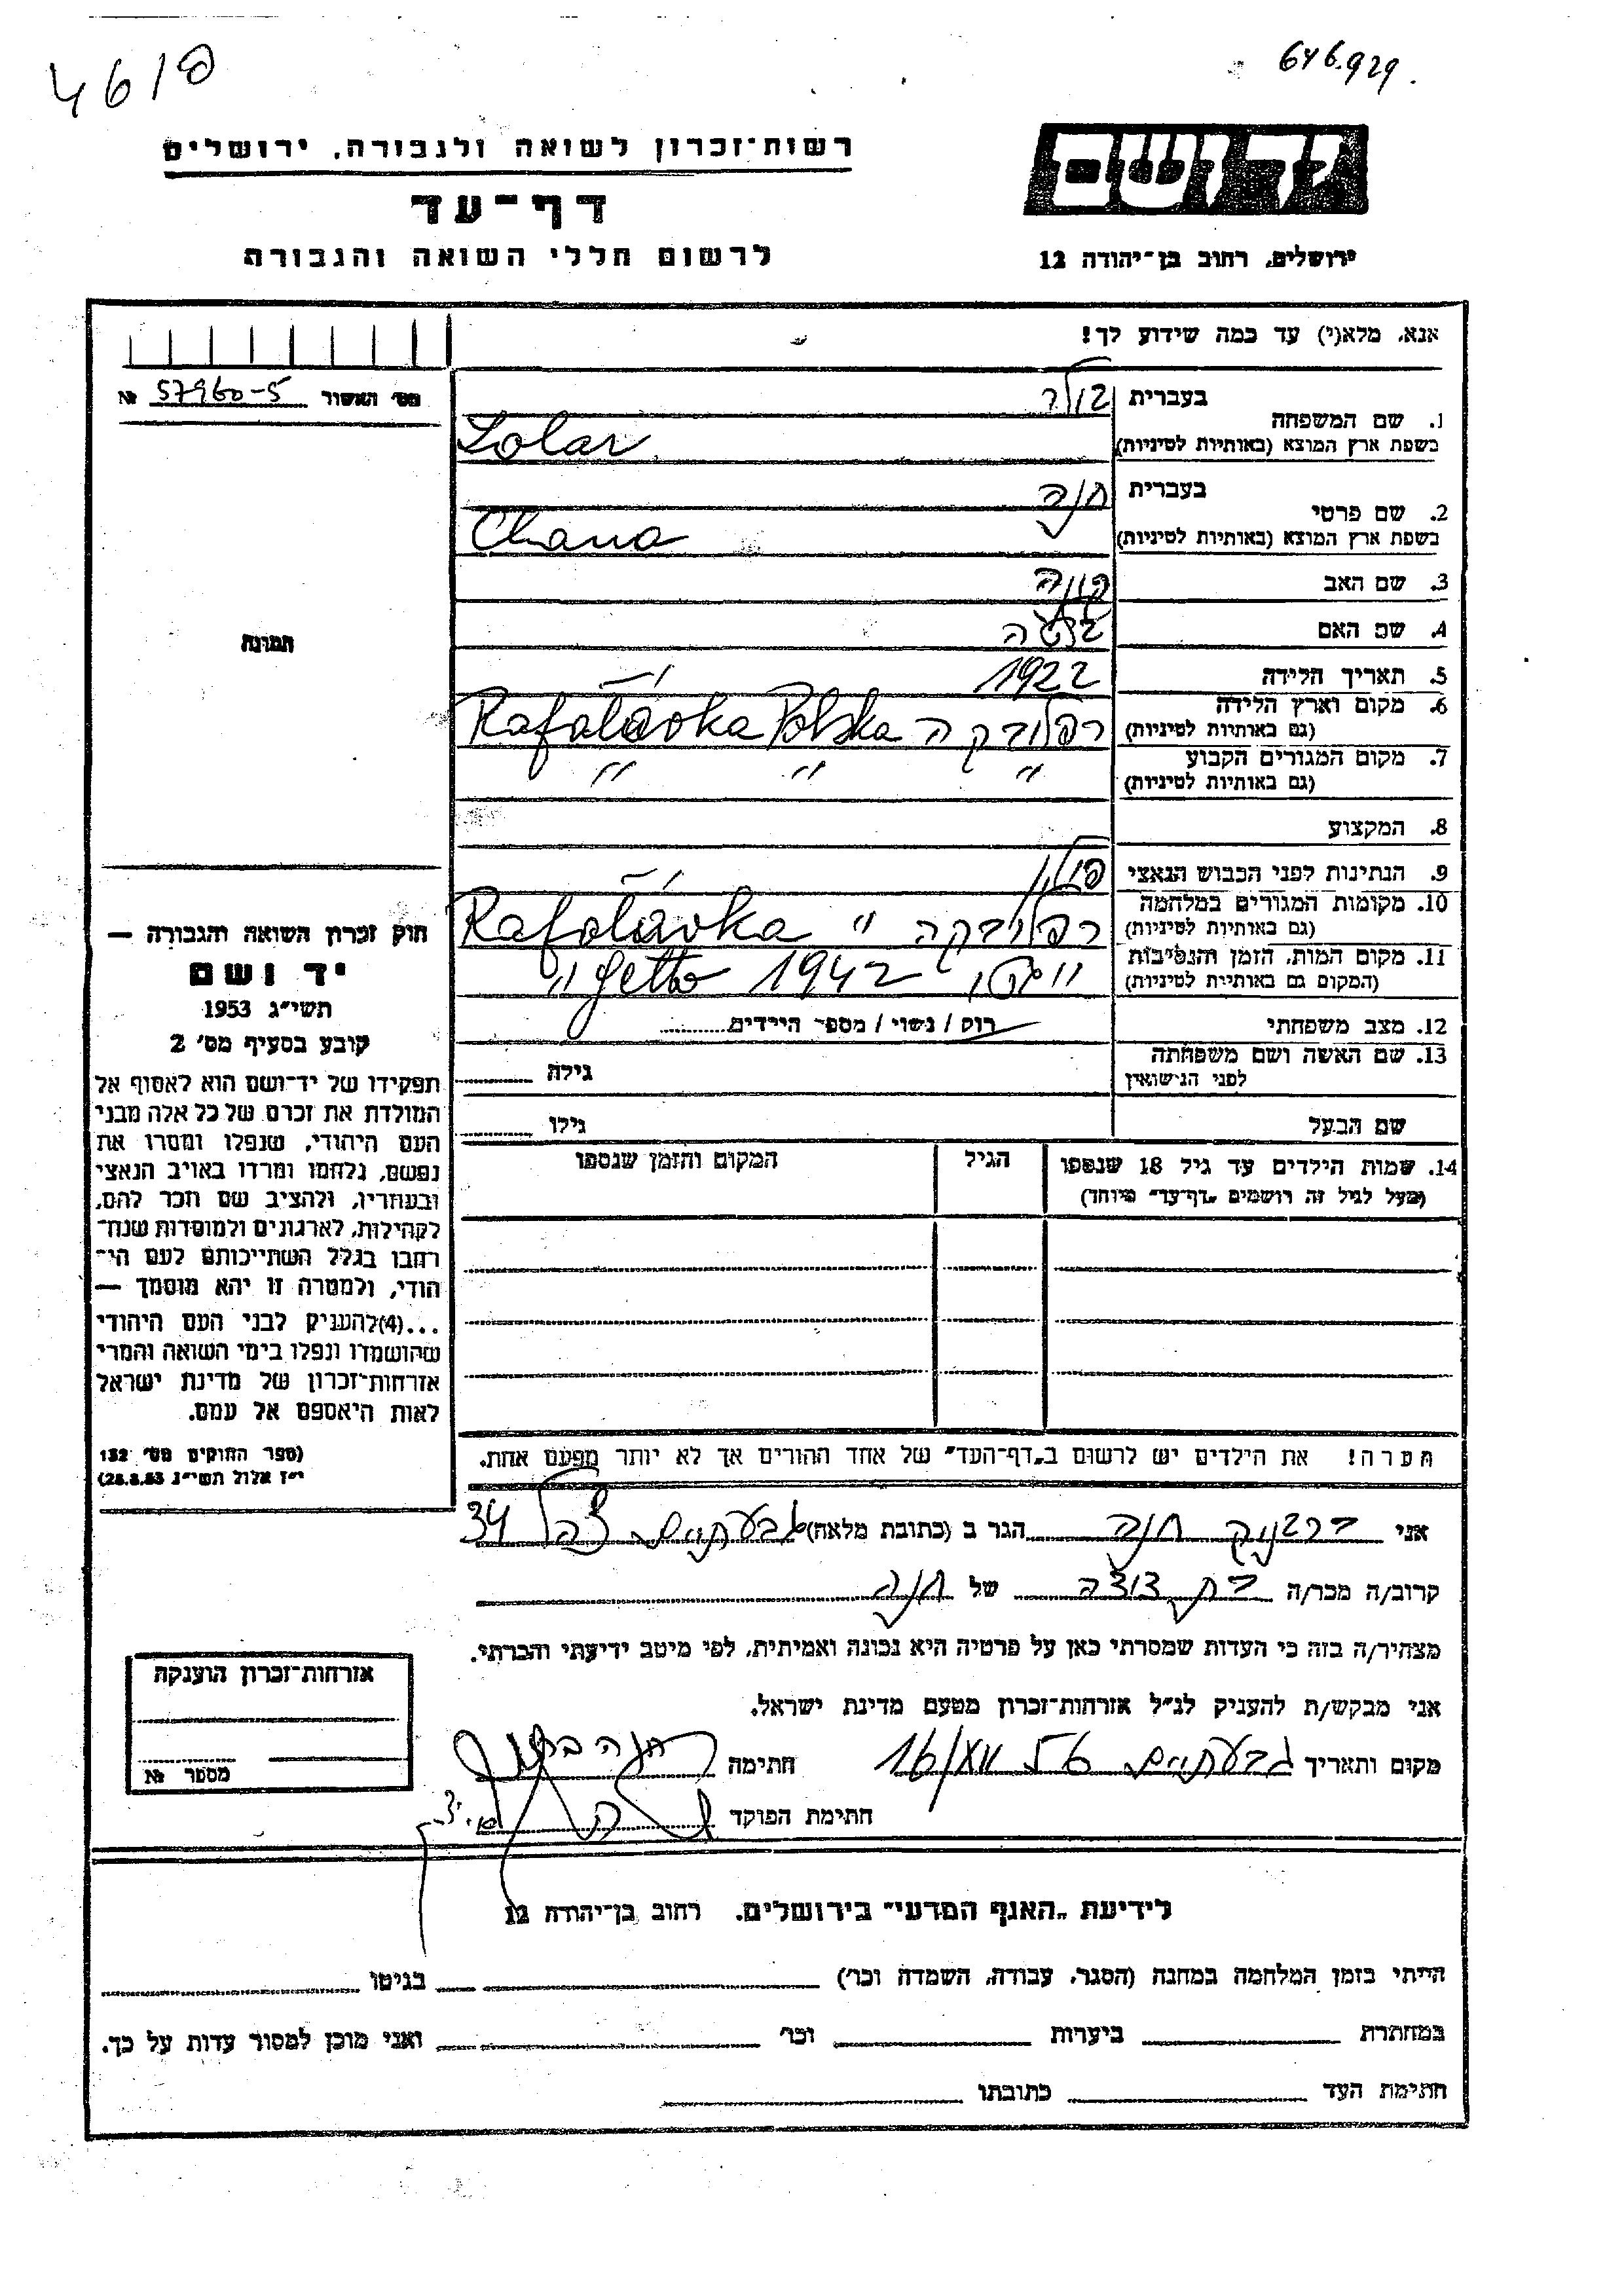 4618
646.929
רשות־זכרון לשואה ולגבורה, ירושלים
דף־עד
לרשום חללי השואה והגבורה
ירושלים, רחוב בן־יהודה 12
אנא, מלא(י) עד כמה שידוע לך!
מס׳ האשור 57960-5 №
1. שם המשפחה
בעברית
בשפת ארץ המוצא (באותיות לטיניות)
Zolar
2. שם פרטי
בעברית חנה
בשפת ארץ המוצא (באותיות לטיניות)
Chana
3. שם האב
4. שם האם
5. תאריך הלידה 1922
6. מקום וארץ הלידה
(גם באותיות לטיניות)
רפלובקה Rafałóvka Polska
7. מקום המגורים הקבוע
(גם באותיות לטיניות)
" " "
8. המקצוע
9. הנתינות לפני הכבוש הנאצי פולין
10. מקומות המגורים במלחמה
(גם באותיות לטיניות)
רפלובקה " Rafołóvka
11. מקום המות, הזמן והנסיבות
(המקום גם באותיות לטיניות)
1942 getto
12. מצב משפחתי רוק / נשוי / מספר הילדים
13. שם האשה ושם משפחתה
לפני הנישואין
גילה
שם הבעל
גילו
14. שמות הילדים עד גיל 18 שנספו
(מעל לגיל זה רושמים „דף־עד" מיוחד)
הגיל
המקום והזמן שנספו
תמונה
חוק זכרון השואה והגבורה —
יד ושם
תשי״ג 1953
קובע בסעיף מס׳ 2
תפקידו של יד־ושם הוא לאסוף אל
המולדת את זכרם של כל אלה מבני
העם היהודי, שנפלו ומסרו את
נפשם, נלחמו ומרדו באויב הנאצי
ובעוזריו, ולהציב שם וזכר להם,
לקהילות, לארגונים ולמוסדות שנח־
רבו בגלל השתייכותם לעם הי־
הודי, ולמטרה זו יהא מוסמך —
...(4)להעניק לבני העם היהודי
שהושמדו ונפלו בימי השואה והמרי
אזרחות־זכרון של מדינת ישראל
לאות היאספם אל עמם.
(ספר החוקים מס׳ 132
י״ז אלול תשי״ג 28.8.53)
הערה! את הילדים יש לרשום ב„דף־העד" של אחד ההורים אך לא יותר מפעם אחת.
אני חנה הגר ב (כתובת מלאה) גבעתיים 34
קרוב/ה מכר/ה בת דודה של חנה
מצהיר/ה בזה כי העדות שמסרתי כאן על פרטיה היא נכונה ואמיתית, לפי מיטב ידיעתי והכרתי.
אני מבקש/ת להעניק לנ״ל אזרחות־זכרון מטעם מדינת ישראל.
מקום ותאריך גבעתיים חתימה
חתימת הפוקד
אזרחות־זכרון הוענקה
מספר №
לידיעת „האגף המדעי" בירושלים, רחוב בן־יהודה 12
הייתי בזמן המלחמה במחנה (הסגר, עבודה, השמדה וכו׳) בגיטו
במחתרת ביערות וכו׳ ואני מוכן למסור עדות על כך.
חתימת העד כתובתו